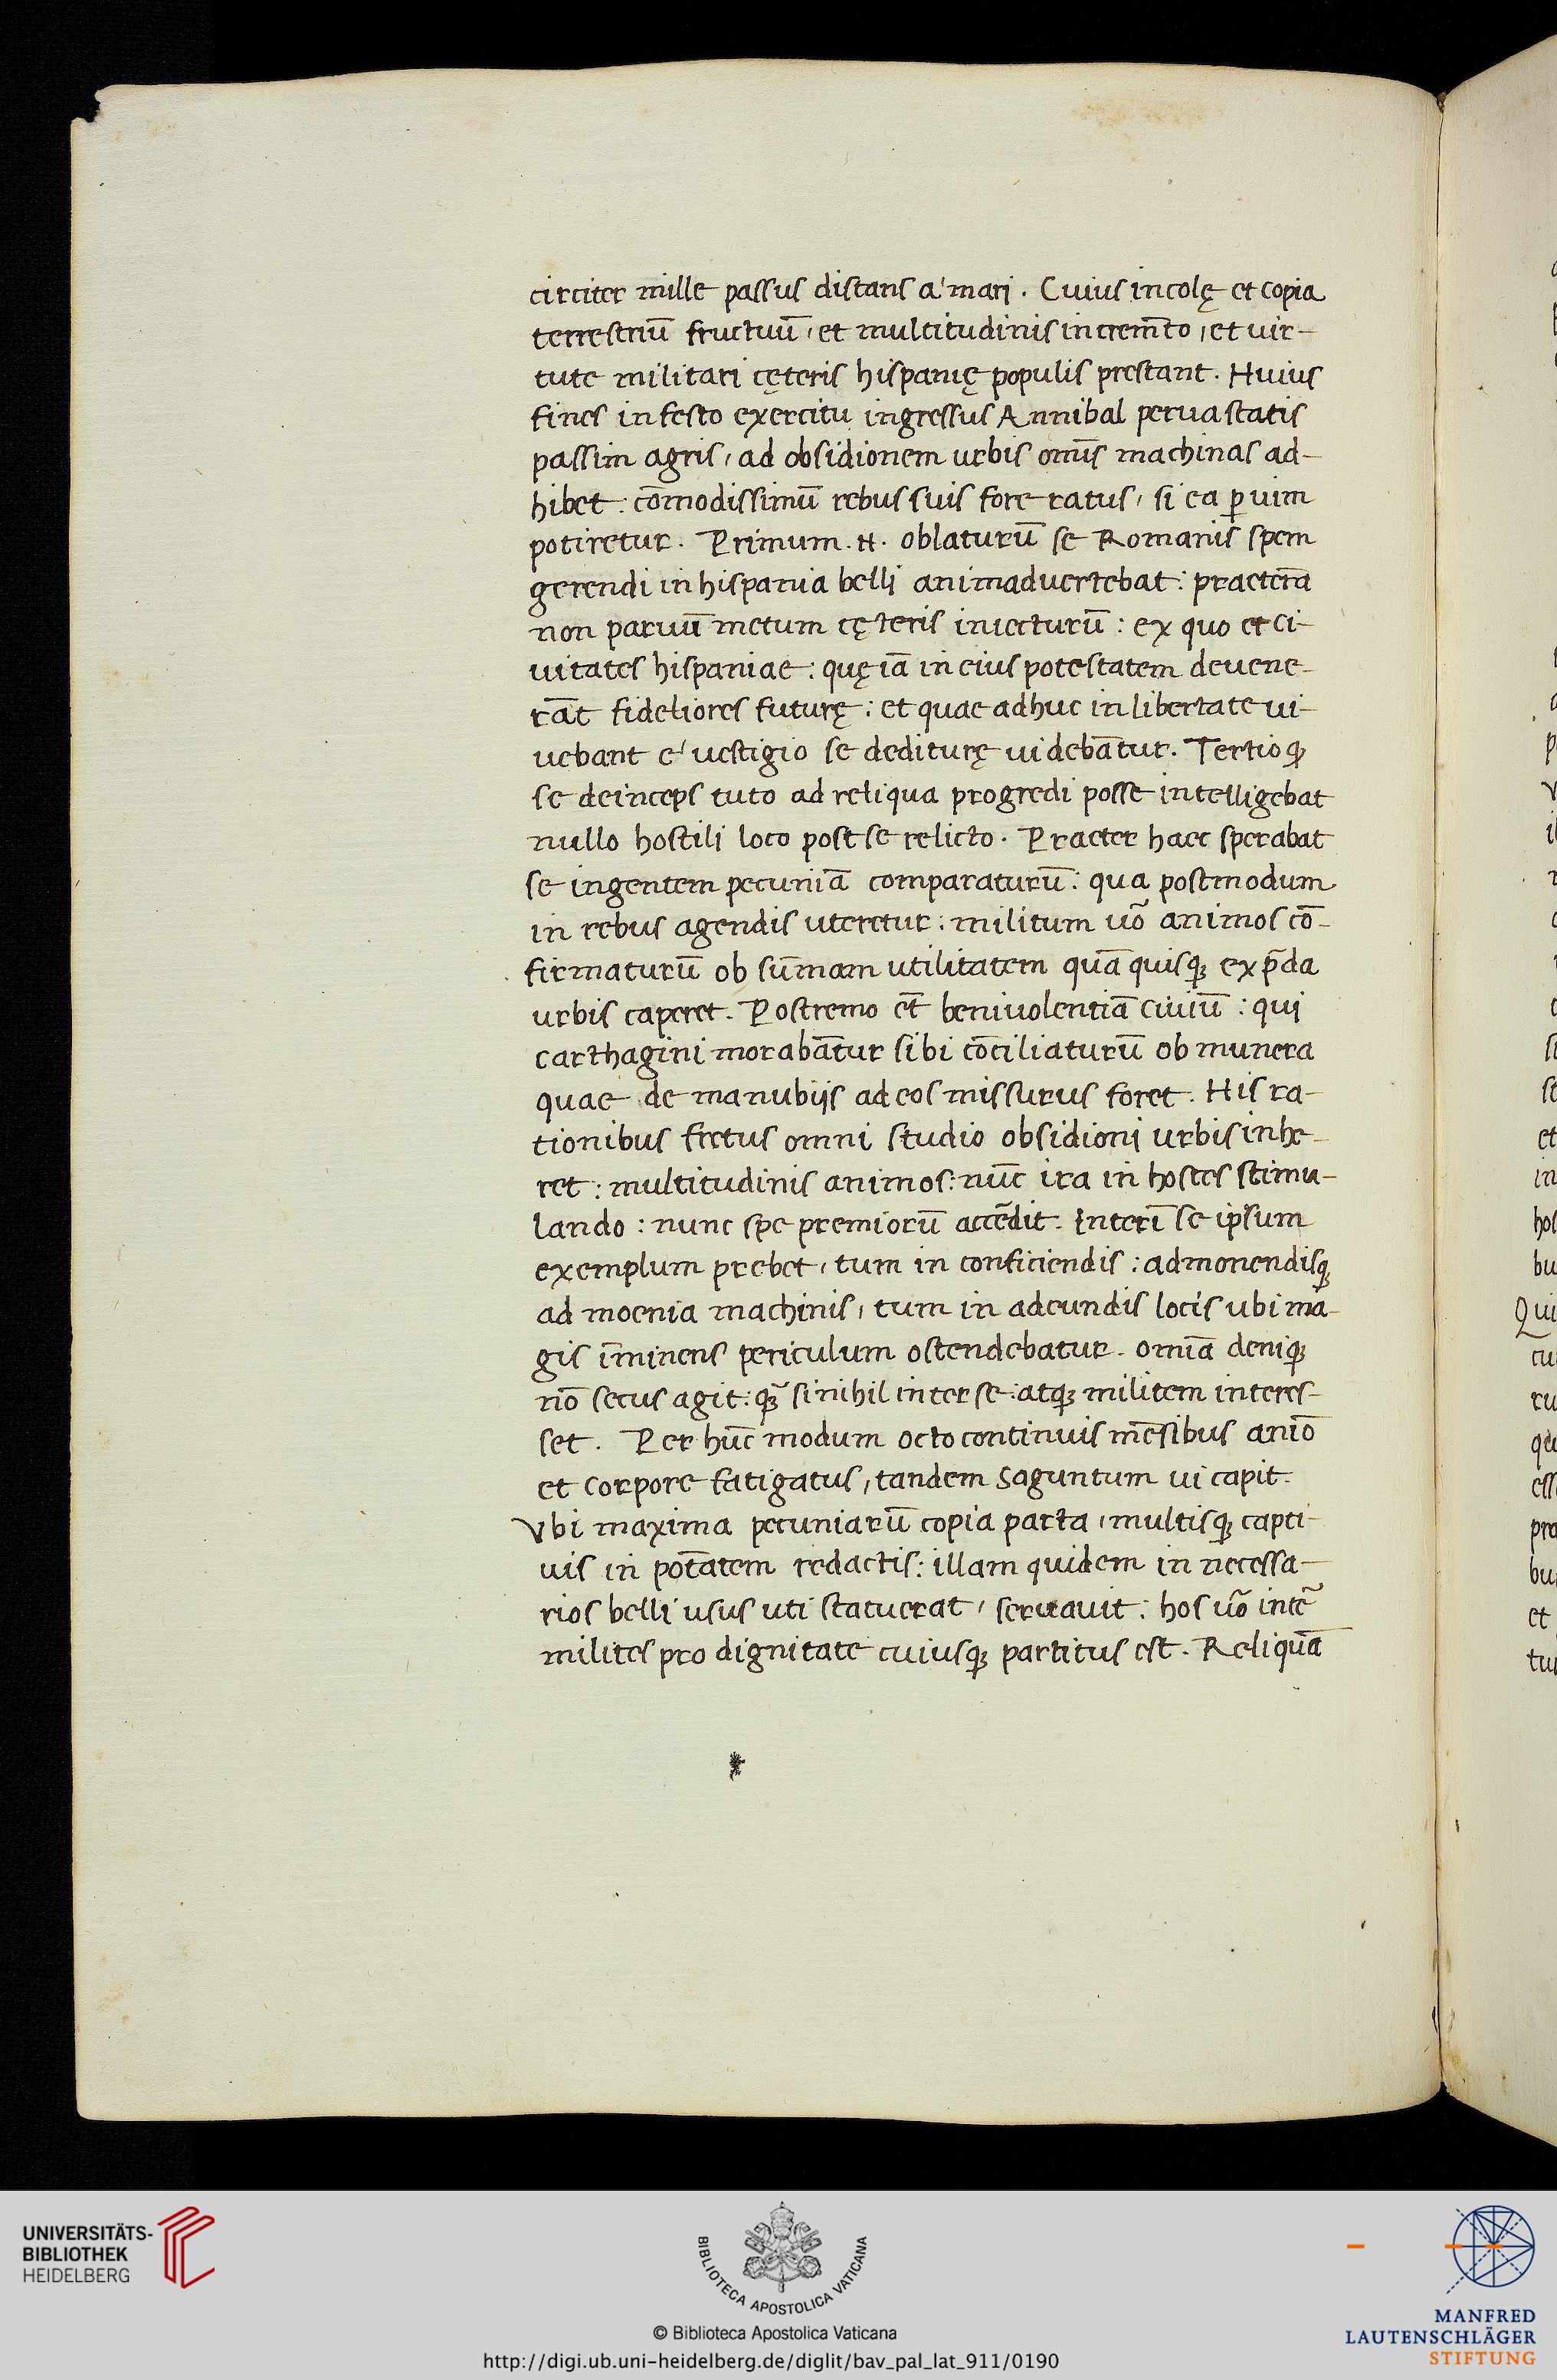 circiter mille passus distans a' mari . Cuius incolę et copia
terrestriū fructuū, et multitudinis increm̄to, et uir-
tute militari cęteris hispanię populis prestant . Huius
fines infesto exercitu ingressus Annibal peruastatis
passim agris, ad obsidionem urbis om̄s machinas ad-
hibet : cōmodissimū rebus suis fore ratus, si ea ꝑ uim
potiretur . Primum .N. oblaturū se Romanis spem
gerendi in hispania belli animaduertebat : praeterā
non paruū metum cęteris iniecturū : ex quo et ci-
uitates hispaniae : quę iā in eius potestatem deuene-
rāt fideliores futurę : et quae adhuc in libertate ui-
uebant e' uestigio se dediturę uidebātur . Tertioqꝫ
se deinceps tuto ad reliqua progredi posse intelligebat
nullo hostili loco post se relicto . Praeter haec sperabat
se ingentem pecuniā comparaturū : qua postmodum
in rebus agendis uteretur : militum uō animos cō-
firmaturū ob sūmam utilitatem quā quisqꝫ ex p̄da
urbis caperet . Postremo et̄ beniuolentiā ciuiū : qui
carthagini morabātur sibi cōciliaturū ob munera
quae de manubijs ad eos missurus foret . His ra-
tionibus fretus omni studio obsidioni urbis inhe-
ret : multitudinis animos : nūc ira in hostes stimu-
lando : nunc spe premiorū accēdit . Interī se ipsum
exemplum prebet, tum in conficiendis : admonendisqꝫ
ad moenia machinis, tum in adeundis locis ubi ma-
gis īminens periculum ostendebatur . omīa deniqꝫ
nō secus agit : qꝫ̄ si nihil inter se : atqꝫ militem interes-
set . Per hūc modum octo continuis mēsibus anīo
et corpore fatigatus, tandem Saguntum ui capit .
Vbi maxima pecuniarū copia parta, multisqꝫ capti-
uis in potātem redactis : illam quidem in necessa-
rios belli usus uti statuerat, seruauit : hos uō int̄
milites pro dignitate cuiusqꝫ partitus est . Reliquā
UNIVERSITÄTS-
BIBLIOTHEK
HEIDELBERG
BIBLIOTECA APOSTOLICA VATICANA
© Biblioteca Apostolica Vaticana
http://digi.ub.uni-heidelberg.de/diglit/bav_pal_lat_911/0190
MANFRED
LAUTENSCHLÄGER
STIFTUNG